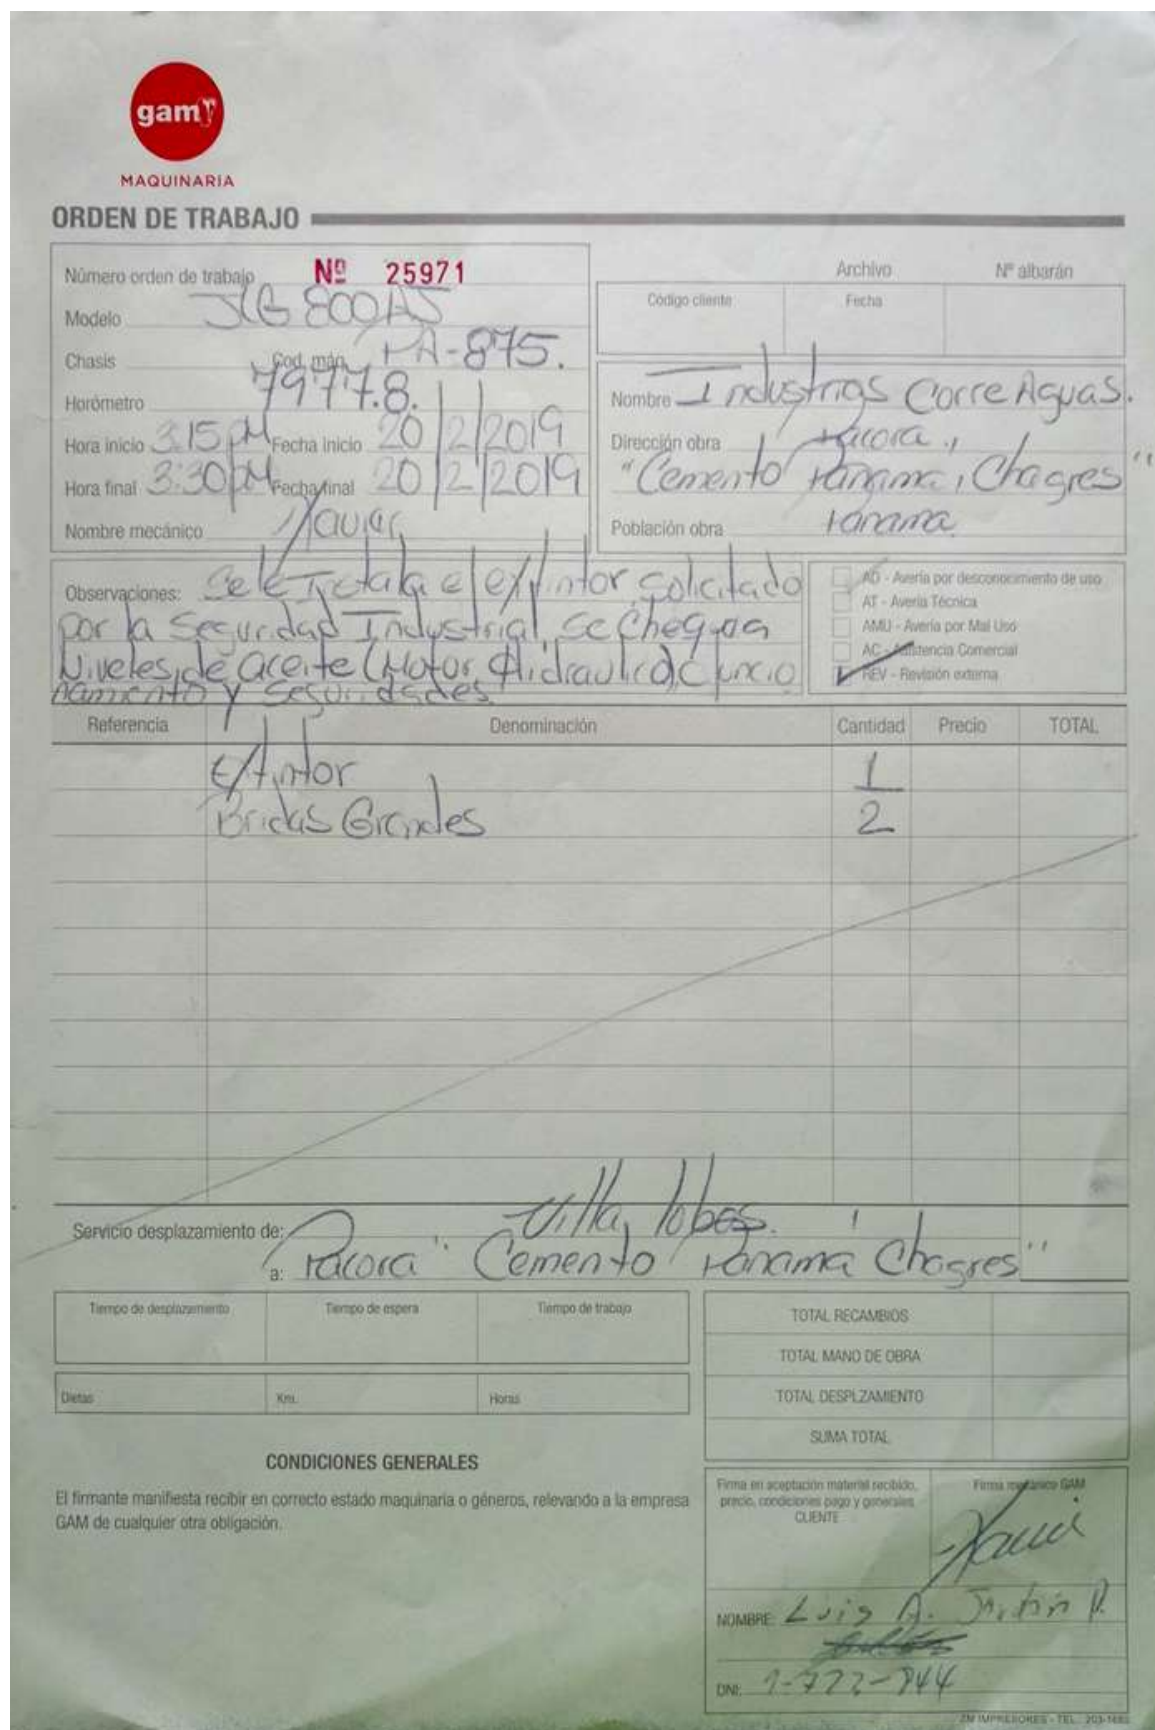 gam
MAQUINARIA
ORDEN DE TRABAJO
Número orden de trabajo Nº 25971
Modelo JLG 800AJ
Chasis Cod. máq. PA-875.
Horómetro 7977.8.
Hora inicio 3:15 PM Fecha inicio 20/2/2019
Hora final 3:30 PM Fecha final 20/2/2019
Nombre mecánico Xavier
Archivo Nº albarán
Código cliente Fecha
Nombre Industrias Corre Aguas.
Dirección obra Pacora,
"Cemento Panama, Chagres"
Población obra Panama
Observaciones: Se le Instala el extintor solicitado
por la Seguridad Industrial, se chequea
Niveles de aceite (Motor, Hidraulico), funcio
namiento y seguridades.
AD - Avería por desconocimiento de uso
AT - Avería Técnica
AMU - Avería por Mal Uso
AC - Asistencia Comercial
REV - Revisión externa
Referencia Denominación Cantidad Precio TOTAL
Extintor 1
Bridas Grandes 2
Servicio desplazamiento de: Villa lobos.
a: Pacora "Cemento Panama Chagres"
Tiempo de desplazamiento Tiempo de espera Tiempo de trabajo
Dietas Km. Horas
TOTAL RECAMBIOS
TOTAL MANO DE OBRA
TOTAL DESPLZAMIENTO
SUMA TOTAL
CONDICIONES GENERALES
El firmante manifiesta recibir en correcto estado maquinaria o géneros, relevando a la empresa
GAM de cualquier otra obligación.
Firma en aceptación material recibido,
precio, condiciones pago y generales
CLIENTE
Firma mecánico GAM
NOMBRE: Luis A.
DNI:
ZM IMPRESORES - TEL.: 203-